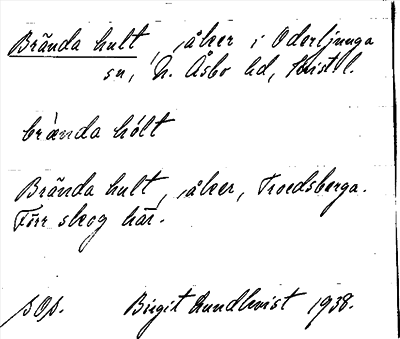 Brända hult, åker i Oderljunga
sn, N. Åsbo hd, Krist. l.
brànda hólt
Brända hult, åker, Troedsberga.
Förr skog här.
sOp. Birgit Lundkvist 1938.